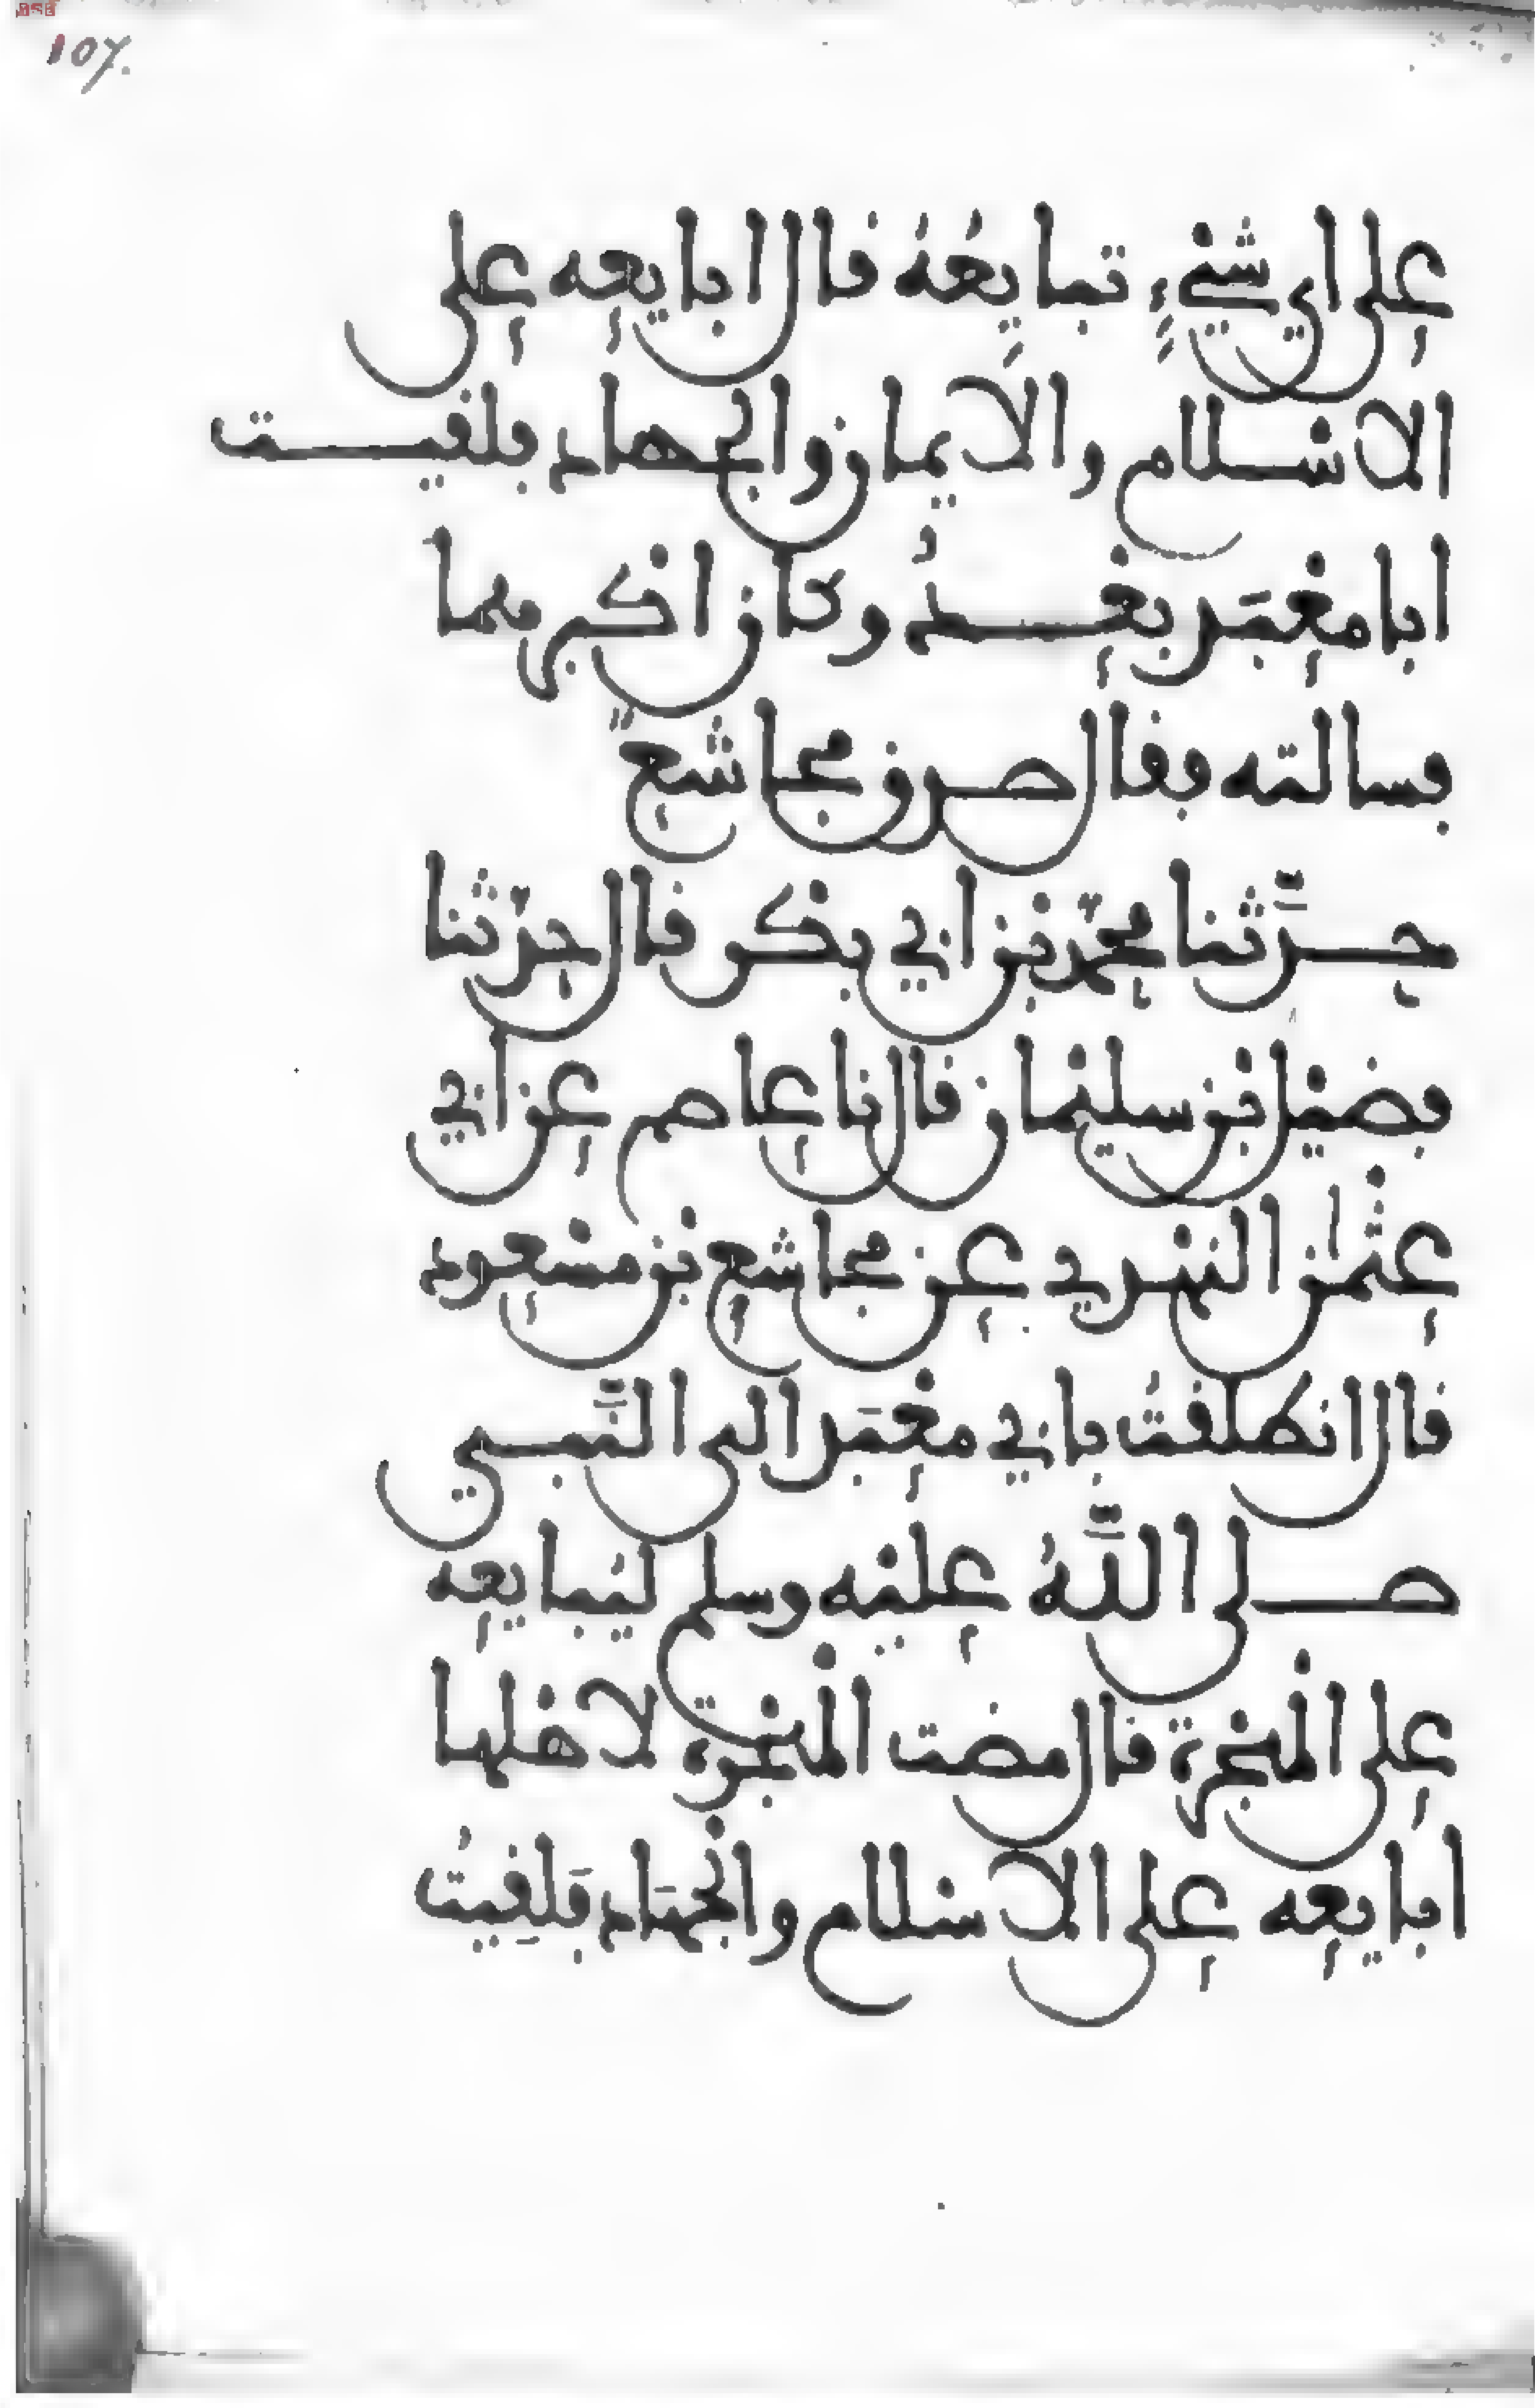 107.
على اي شيءٍ تبايِعُهُ قال ابايعه على
الاسلام والايمان والجهاد فلقيت
ابا معبَد بعدُ وكان اكبرهما
فسالته فقال صدق مجاشعٌ
حدَّثنا محمّد بن ابي بكر قال حدّثنا
فضيل بن سليمان قال نا عاصم عن ابي
عثمٰن النهدي عن مجاشع بن مسعود
قال انطلقتُ بابي معبَد الى النَّبي
صلى اللَّهُ عليه وسلم ليُبايعه
على الهجرة قال مضت الهجرة لاهلها
ابايعه على الاسلام والجهَاد فَلقِيتُ